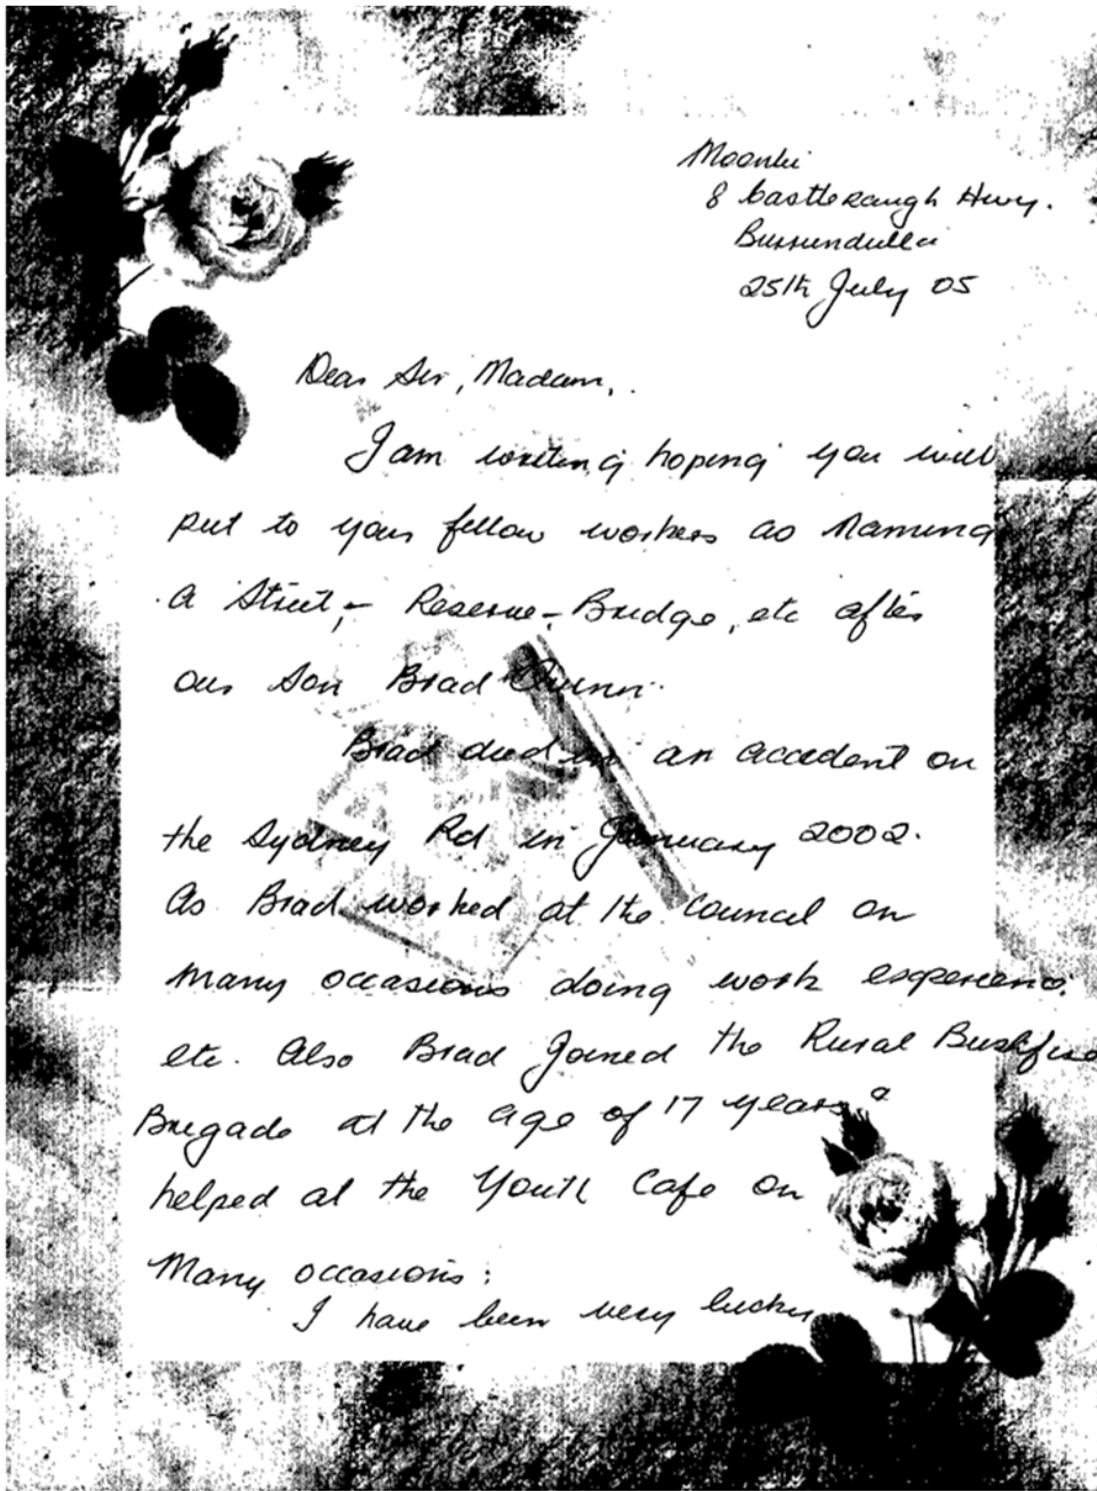 Moonbi
8 Castlereaugh Hwy.
Burrundulla
25th July 05
Dear Sir, Madam,.
I am writing hoping you will
put to your fellow workers as Naming
a Street, - Reserve - Bridge, etc after
our Son Brad Quinn.
Brad died in an accident on
the Sydney Rd in January 2002.
As Brad worked at the Council on
many occasions doing work experience.
etc. Also Brad Joined the Rural Bushfire
Brigade at the age of 17 years &
helped at the Youth Cafe on
Many occasions:
I have been very lucky